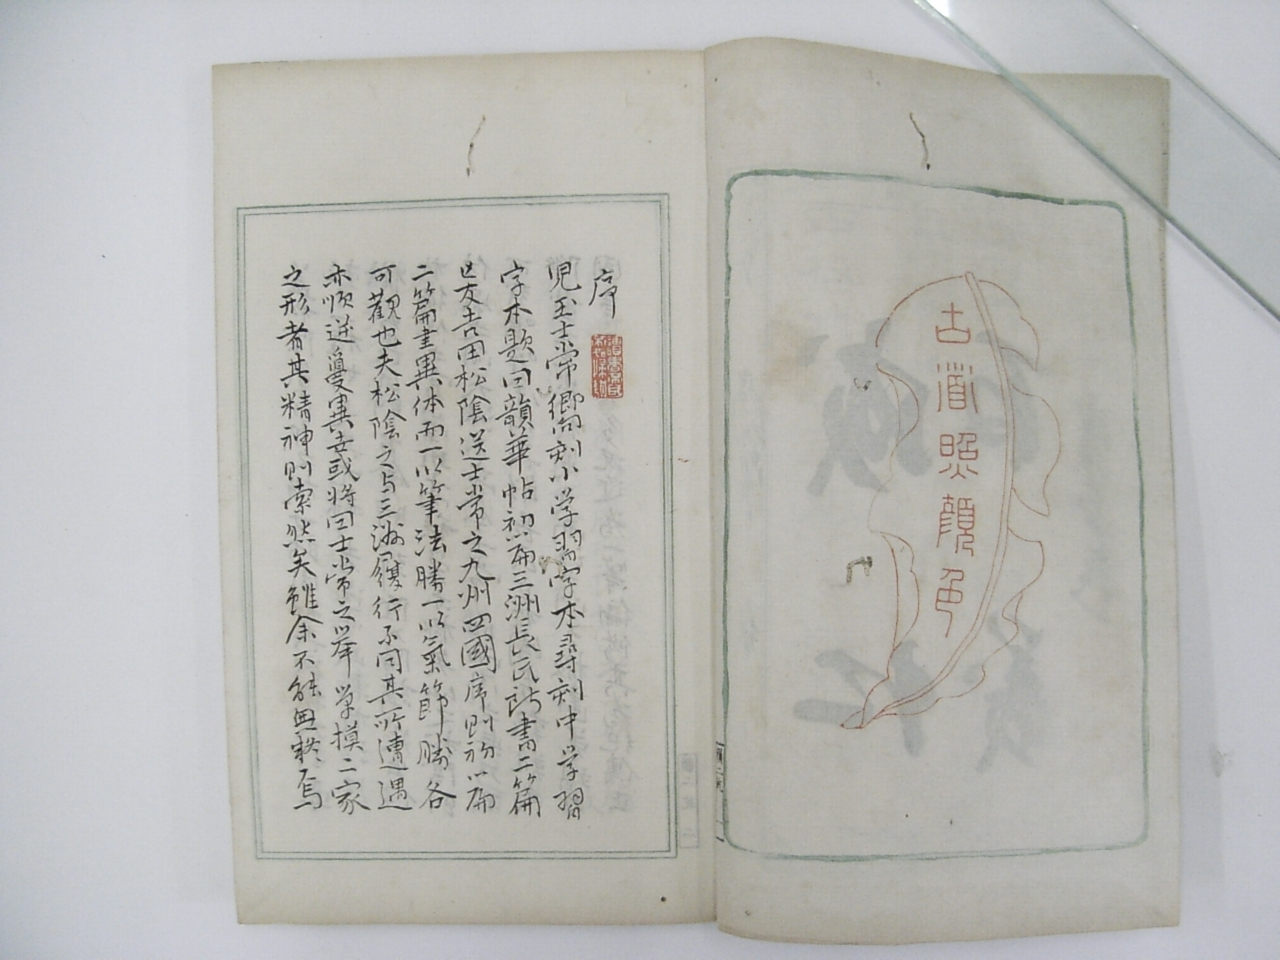 古道照顔色
序
児玉士常嚮刻小学習字本尋刻中学習
字本題曰韻華帖初篇三洲長氏所書二篇
亡友吉田松陰送士常之九州四國序則初篇
二篇書異体而一以筆法勝一以氣節勝各
可觀也夫松陰之与三洲履行不同其所遭遇
亦順逆夐異世或将曰士常之挙学摸二家
之形者其精神則索然矣雖余不能無疑焉